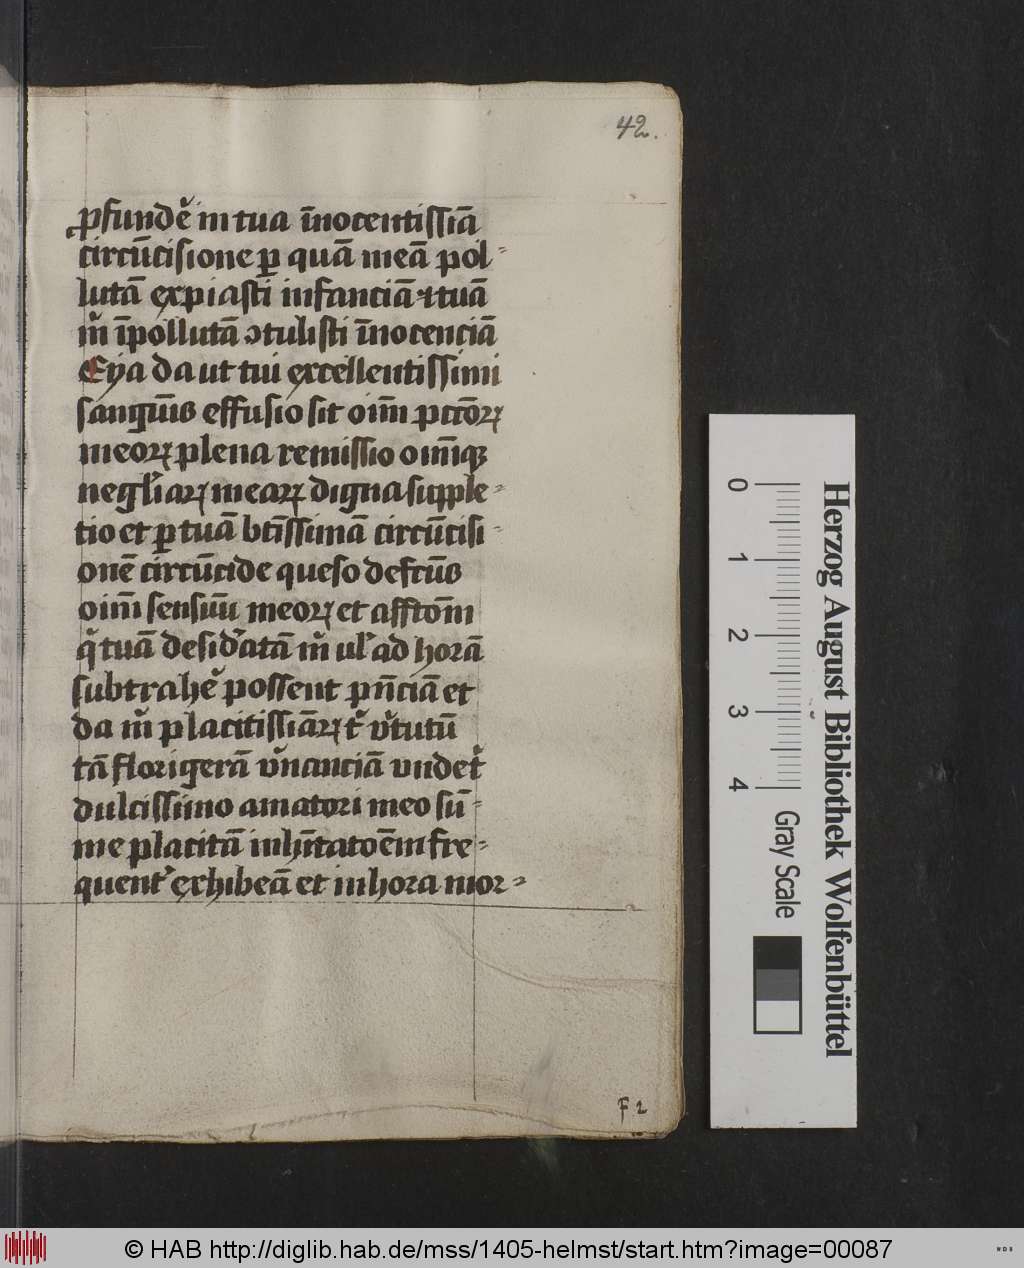 42.
ꝓfundẽ in tua īnocentissiā
circūcisione ꝑ quā meā pol-
lutā expiasti infanciā ⁊ tuā
m̃ īpollutā ↄtulisti īnocenciā
Eya da ut tui excellentissimi
sanguīs effusio sit oīm pctōꝝ
meoꝝ plena remissio oīmqꝫ
negl̓iaꝝ meaꝝ digna supple-
tio et ꝑ tuā btīssimā circūcisi-
onē circūcide queso defctūs
oīm sensuū meoꝝ et afftōm
q̃ tuā desid̓atā m̃ ul̓ ad horā
subtrahẽ possent pn̄ciā et
da m̃ placitissiāꝝ t̃ v̓tutū
tā florigerā v̓nanciā vndet̃
dulcissimo amatori meo sū-
me placitā inhītatoēm fre-
quent̓ exhibeā et in hora mor-
F 2
Herzog August Bibliothek Wolfenbüttel
0
1
2
3
4
Gray Scale
© HAB http://diglib.hab.de/mss/1405-helmst/start.htm?image=00087